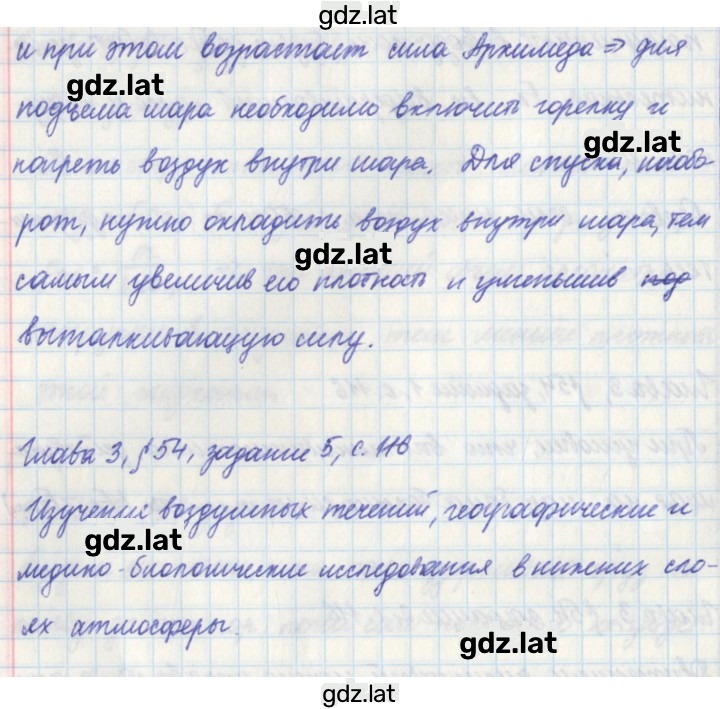 gdz.lat
и при этом возрастает сила Архимеда => для
gdz.lat
подъема шара необходимо включить горелку и
gdz.lat
погреть воздух внутри шара. Для спуска, наобо-
рот, нужно охладить воздух внутри шара, тем
gdz.lat
самым увеличив его плотность и уменьшив под
выталкивающую силу.
Глава 3, § 54, задание 5, с. 116
Изучения воздушных течений, географические и
gdz.lat
медико-биологические исследования в нижних сло-
ях атмосферы.
gdz.lat
gdz.lat